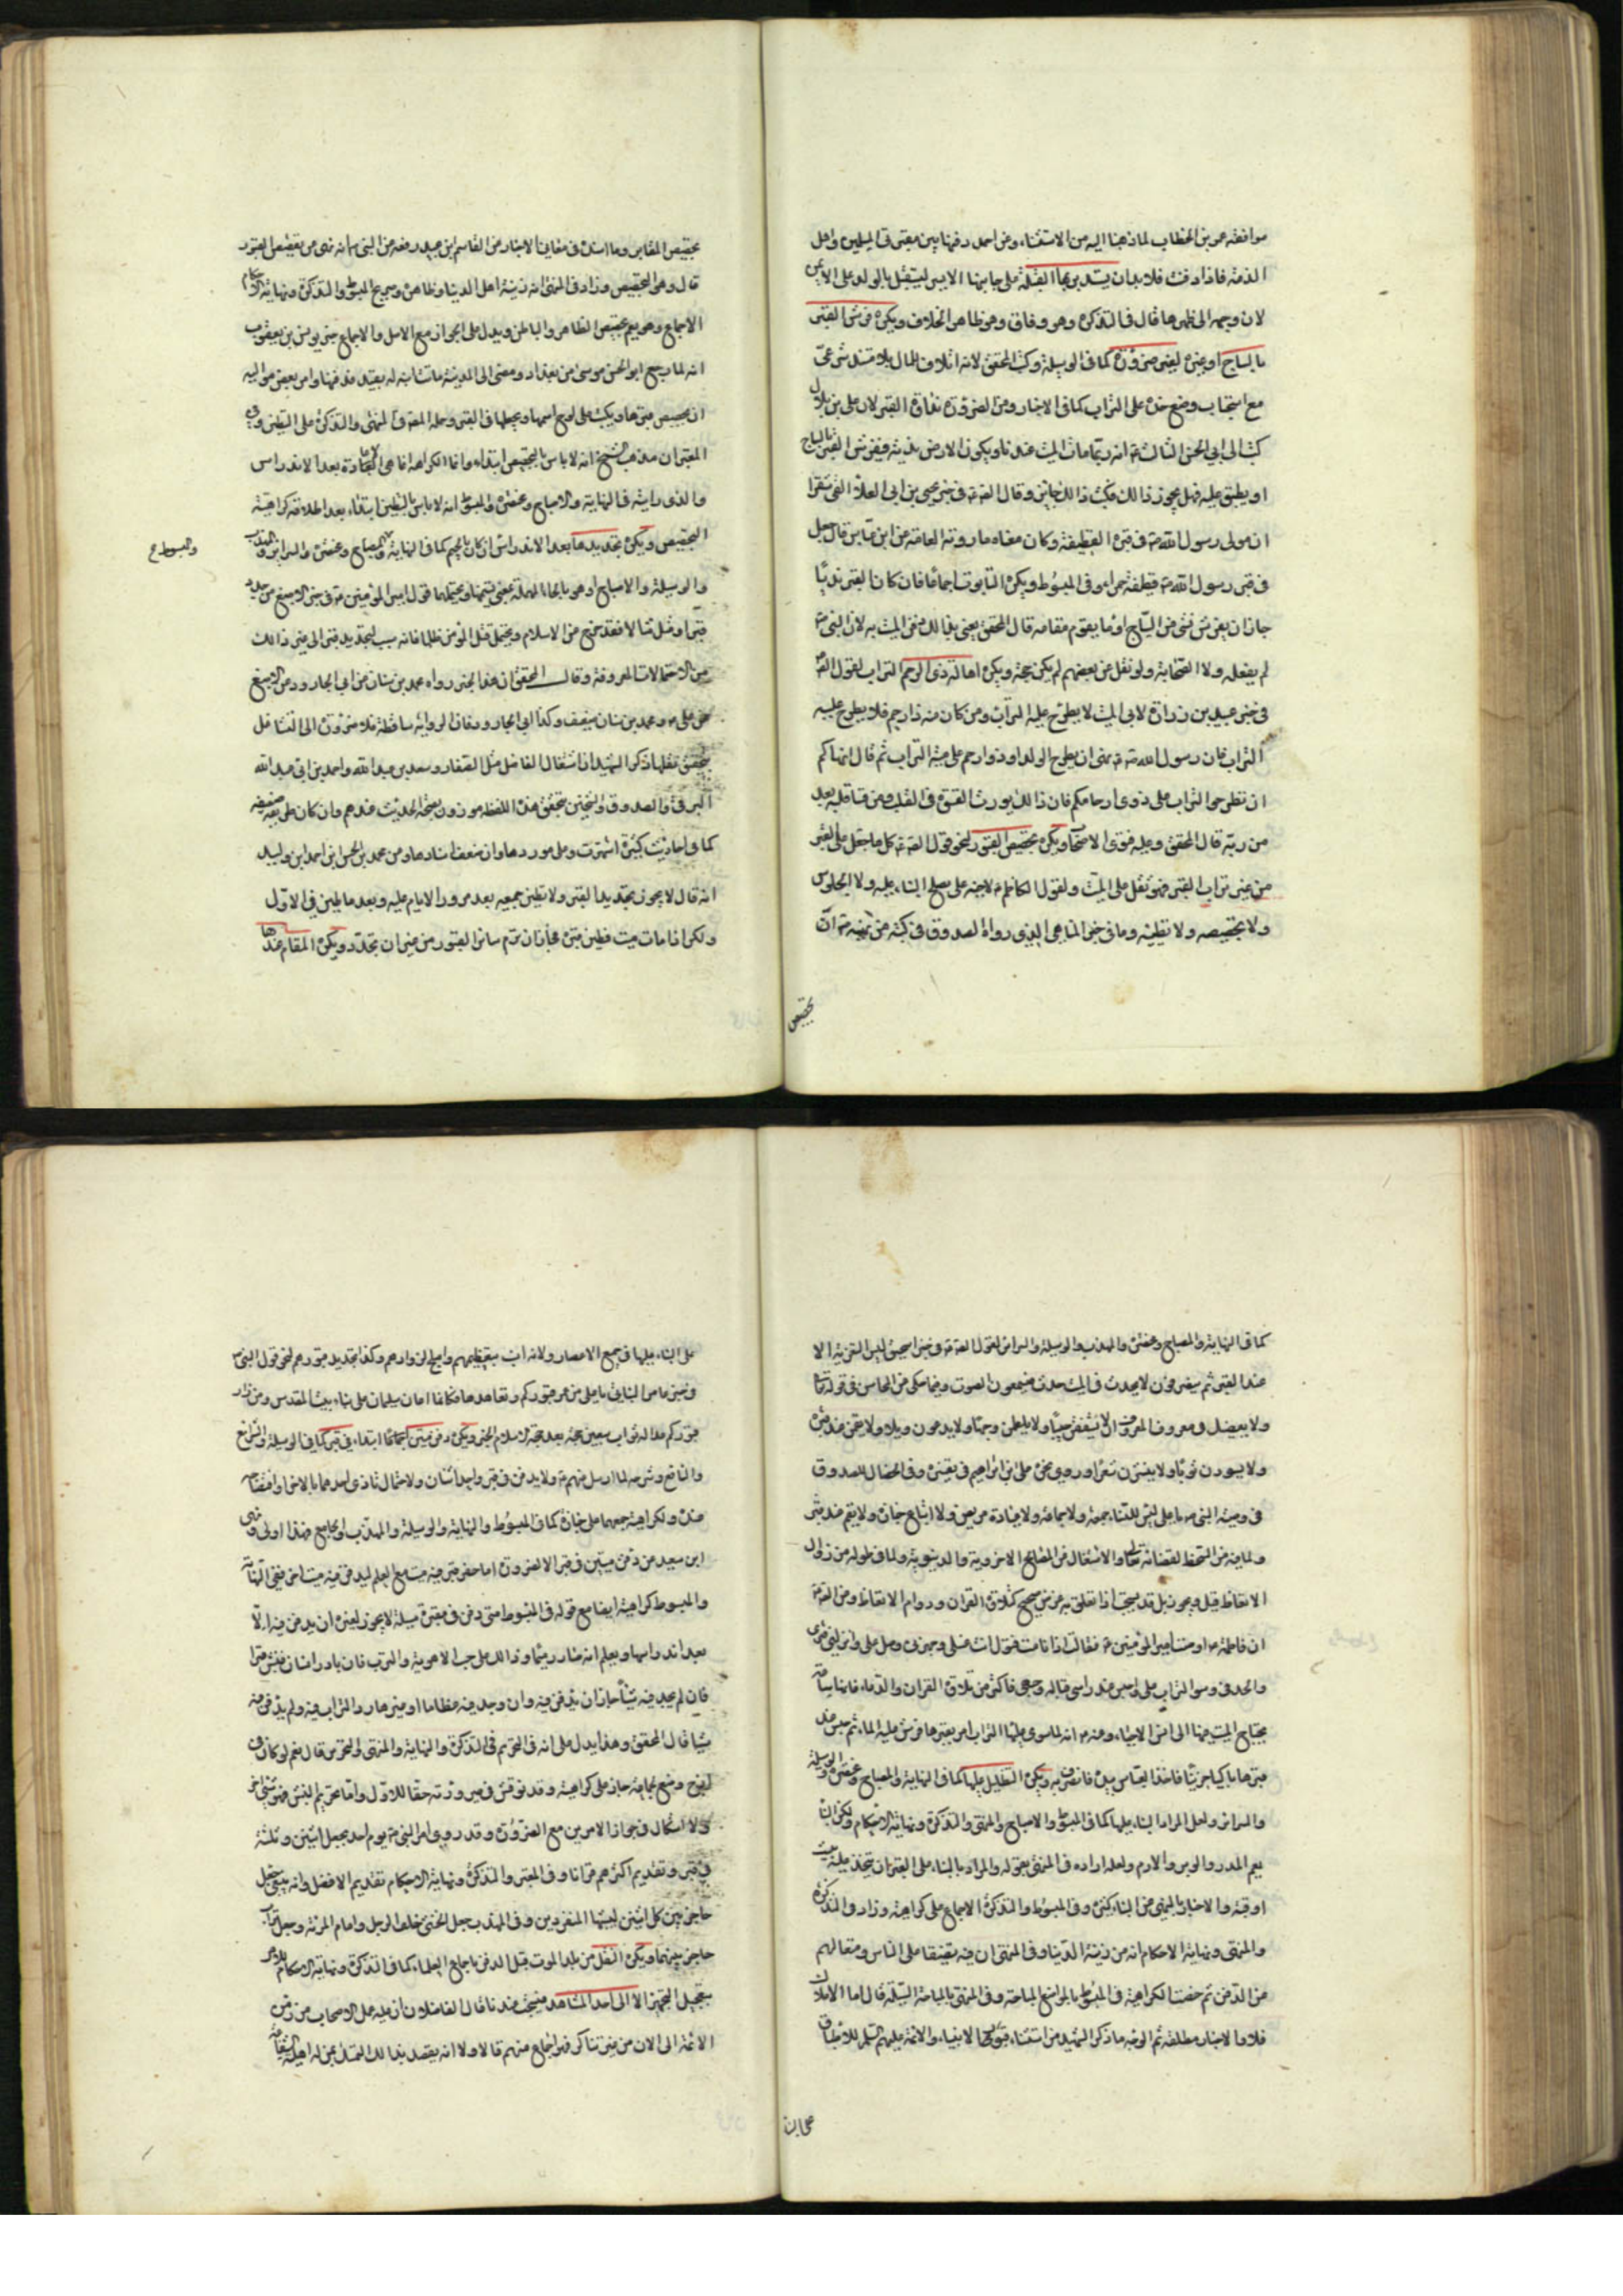 موافقة عمر بن الخطاب لما ذهبنا اليه من الاستثناء وعن احمد دفنها بين مقبرتى المسلمين واهل
الذمة فاذا دفنت فلابد ان يستدبر بها القبلة على جانبها الايسر ليستقبل بالولد على الايمن
لان وجهه الى ظهرها قال فى التذكرة وهو وفاق وهو ظاهر الخلاف ويكره فرش القبر
بالساج او غيره لغير ضرورة كما فى الوسيلة وكتب المحقق لانه اتلاف للمال بلا مستند شرعى
مع استحباب وضع خده على التراب كما فى الاخبار ومن الضرورة نداوة القبر لان على بن بلال
كتب الى ابى الحسن الثالث ع انه ربما مات الميت عندنا ويكون الارض ندية فيفرش القبر بالساج
او يطبق عليه فهل يجوز ذلك فكتب ذلك جائز وقال الصادق ع فى خبر يحيى بن ابى العلا القى شقران
مولى رسول الله ص فى قبره القطيفة وكان معناه ما روته العامة عن ابن عباس قال جعل
فى قبر رسول الله ص قطيفة حمراء وفى المبسوط ويكره التابوت اجماعا فان كان القبر نديا
جاز ان يفرش بشئ من الساج او ما يقوم مقامه قال المحقق يعنى بذلك دفن الميت به لان النبى ص
لم يفعله ولا الصحابة ولو نقل عن بعضهم لم يكن حجة ويكره اهالة ذى الرحم التراب لقول الصادق ع
فى خبر عبيد بن زرارة لابى الميت لا يطرح عليه التراب ومن كان منه ذا رحم فلا يطرح عليه
التراب فان رسول الله ص نهى ان يطرح الوالد او ذو رحم على ميته التراب ثم قال انهاكم
ان تطرحوا التراب على ذوى ارحامكم فان ذلك يورث القسوة فى القلب ومن قسا قلبه بعد
من ربه قال المحقق وعليه فتوى الاصحاب ويكره تجصيص القبور لنحو قول الصادق ع كل ما جعل على القبر
من غير تراب القبر فهو ثقل على الميت ولقول الكاظم ع لاخيه على لا يصلح البناء عليه ولا الجلوس
ولا تجصيصه ولا تطيينه وما فى خبر المناهى الذى رواه الصدوق فى كتبه من نهيه ص ان
تجصيص
تجصيص المقابر وما اسنده فى معانى الاخبار عن القاسم ابن عبيد رفعه عن النبى ص انه نهى عن تقصيص القبور
قال وهو التجصيص وزاد فى المنتهى انه زينة اهل الدنيا وظاهره وصريح المبسوط والتذكرة ونهاية الاحكام
الاجماع وهو يعم تجصيص الظاهر والباطن ويدل على الجواز مع الاصل والاجماع خبر يونس بن يعقوب
انه لما رجع ابو الحسن موسى من بغداد ومضى الى المدينة ماتت ابنة له بفيد فدفنها وامر بعض مواليه
ان يجصص قبرها ويكتب على لوح اسمها ويجعلها فى القبر وحمله المعتبر والمنتهى والتذكرة على التطيين وفى
المعتبر ان مذهب الشيخ انه لا باس بالتجصيص ابتداء وانما الكراهة انما هى اعادة بعد الاندراس
والذى رايته فى النهاية والاصباح ومختصره والمبسوط انه لا باس بالتطيين ابتداء بعد اطلاقه كراهية
التجصيص ويكره تجديدها بعد الاندراس ان كان بالجيم كما فى النهاية والمصباح ومختصره والسرائر والمهذب
والمبسوط ع
والوسيلة والاصباح او هو بالحاء المهملة بمعنى تسنيمها ويحتملهما قول امير المؤمنين ع فى خبر الاصبغ من جدد
قبرا او مثل مثالا فقد خرج من الاسلام ويحتمل قتل المؤمن ظلما فانه سبب لتجديد قبر الى غير ذلك
من الاحتمالات المعروفة وقال المحقق ان هذا الخبر رواه محمد بن سنان عن ابى الجارود عن الاصبغ
عن على ع ومحمد بن سنان ضعيف وكذا ابى الجارود فان الرواية ساقطة فلا ضرورة الى التشاغل
بتحقيق نقلها ذكر الشهيد ان اشتغال الفاضل مثل الصفار وسعد بن عبد الله واحمد بن ابى عبد الله
البرقى والصدوق والشيخين بتحقيق هذه اللفظة مؤذن بصحة الحديث عندهم وان كان طريقه ضعيفه
كما فى احاديث كثيرة اشتهرت وعلم موردها وان ضعف اسنادها وعن محمد بن الحسن ابن احمد ابن وليد
انه قال لا يجوز تجديد القبر ولا تطيين جميعه بعد مرور الايام عليه وبعد ما طين فى الاول
ولكن اذا مات ميت فطين قبره فجاز ان ترم سائر القبور من غير ان تجدد ويكره المقام عندها
كما فى النهاية والمصباح ومختصره والمهذب والوسيلة والسرائر لقول الصادق ع فى خبر اسحق ليس التعزية الا
عند القبر ثم ينصرفون لا يحدث فى الميت حدث فيسمعون الصوت وفيما حكى عن المحاسن فى قوله تعالى
ولا يعصينك فى معروف المعروف ان لا يشققن جيبا ولا يلطمن وجها ولا يدعون ويلا ولا يقمن عند قبر
ولا يسودن ثوبا ولا ينشرن شعرا وروى نحوه على ابن ابراهيم فى تفسيره وفى الخصال للصدوق
فى وصية النبى ص يا على ليس للنساء جمعة ولا جماعة ولا عيادة مريض ولا اتباع جنازة ولا يقم عند قبر
ولما فيه من التسخط لقضائه تعالى والاشتغال عن المصالح الاخروية والدنيوية ولما فى طوله من زوال
الاتعاظ قيل ويجوز بل قد يستحب اذا تعلق به غرض صحيح كتلاوة القران ودوام الاتعاظ وعن الصادق ع
ان فاطمة ع اوصت امير المؤمنين ع فقالت اذا انا مت فتول انت غسلى وجهزنى وصل على وانزلنى قبرى
والحدنى وسو التراب على واجلس عند راسى قبالة وجهى فاكثر من تلاوة القران والدعاء فانها ساعة
يحتاج الميت فيها الى انس الاحياء وعنه ع انه لما سوى عليها التراب امر بقبرها فرش عليه الماء ثم جلس عند
قبرها باكيا حزينا فاخذ العباس بيده فانصرف به ويكره التظليل عليها كما فى النهاية والمصباح ومختصره والوسيلة
والسرائر ولعل المراد البناء عليها كما فى المبسوط والاصباح والمنتهى والتذكرة ونهاية الاحكام
يعم المدر والوبر والادم ولعله اراده فى المنتهى بقوله والمراد بالبناء على القبر ان يتخذ عليه بيت
او قبة والاخبار بالنهى عن البناء كثيرة وفى المبسوط والتذكرة الاجماع على كراهيته وزاد فى التذكرة
والمنتهى ونهاية الاحكام انه من زينة الدنيا وفى المنتهى ان فيه تضييقا على الناس ومنعا لهم
عن الدفن ثم خصت الكراهية فى المبسوط بالمواضع المباحة وفى المنتهى بالمباحة المسبلة قال اما الاملاك
فلا والاخبار مطلقة ثم الوجه ما ذكر الشهيد من استثناء قبور الانبياء والائمة عليهم السلم للاطباق
على البناء
على البناء عليها فى جميع الامصار ولانه انسب بتعظيمهم واصلح لزوارهم وكذا تجديد قبورهم لنحو قول النبى ص
فى خبر عامر البنانى يا على من عمر قبوركم وتعاهدها فكانما اعان سليمان على بناء بيت المقدس ومن زار
قبوركم عدل له ثواب سبعين حجة بعد حجة الاسلام الخبر ويكره دفن ميتين اجماعا ابتداء فى قبر كما فى الوسيلة والشرائع
والنافع وشرحه لما ارسل عنهم ع ولا يدفن فى قبر واحد اثنان ولاحتمال تاذى احدهما بالاخر او افتضاحه
عنده ولكراهية جمعهما على جنازة كما فى المبسوط والنهاية والوسيلة والمهذب والجامع فهذا اولى ونهى
ابن سعيد عن دفن ميتين فى قبر الا لضرورة اما حفر قبر فيه ميت مع العلم ليدفن فيه ميت اخر ففى النهاية
والمبسوط كراهيته ايضا مع قوله فى المبسوط متى دفن فى مقبرة مسبلة لا يجوز لغيره ان يدفن فيه الا
بعد اندراسها ويعلم انه صار رميما وذلك على حسب الاهوية والترب فان بادر انسان فنبش قبرا
فان لم يجد فيه شيئا جاز ان يدفن فيه وان وجد فيه عظاما او غيرها رد التراب فيه ولم يدفن فيه
شيئا قال المحقق وهذا يدل على انه فى التحريم فى التذكرة والنهاية والمنتهى والتحرير قال نعم لو كان فى
ازج وضع بجانبه جاز على كراهية وقد نوقش فى صيرورته حقا للاول واما تحريم النبش فهو شئ اخر
ولا اشكال فى جواز الامرين مع الضرورة وقد روى امر النبى ص يوم احد بجعل اثنين وثلثة
فى قبر وتقديم اكثرهم قرانا وفى المعتبر والتذكرة ونهاية الاحكام تقديم الافضل وانه ينبغى جعل
حاجز بين كل اثنين ليشبها المنفردين وفى المهذب جعل الخنثى خلف الرجل وامام المراة وجعل تراب
حاجز بينهما ويكره النقل من بلد الموت قبل الدفن باجماع العلماء كما فى التذكرة ونهاية الاحكام
بتعجيل التجهيز الا الى احد المشاهد فيستحب عندنا قال الفاضلان ان عليه عمل الاصحاب من زمن
الائمة الى الان من غير تناكر فهو اجماع منهم قالا ولانه يقصد بذلك التمسك بمن له اهلية الشفاعة